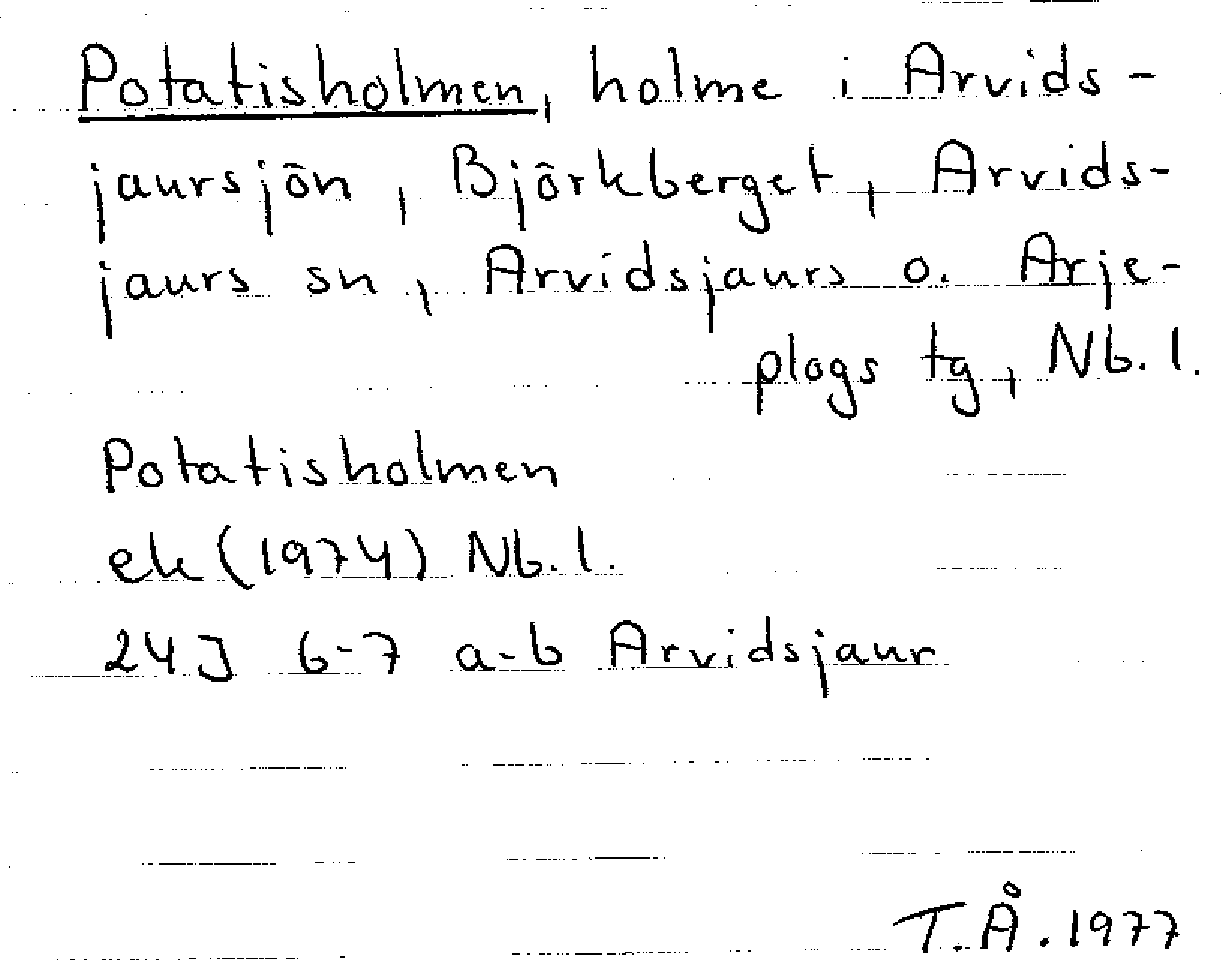 Potatisholmen, holme i Arvids-
jaursjön, Björkberget, Arvids-
jaurs sn, Arvidsjaurs o. Arje-
plogs tg, Nb. l.
Potatisholmen
ek (1974) Nb. l.
24J 6-7 a-b Arvidsjaur
T.Å. 1977